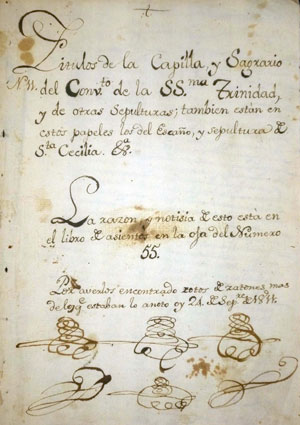 Titulos de la Capilla, y Sagrario
N. 11. del Convto de la SS.ma Trinidad,
y de otras Sepulturas; tambien estàn en
estos papeles los del Escaño, y sepultura de
Sta Cecilia. &a.
La razon, y notisia de esto està en
el libro de asientos en la oja del Numero
55.
Por averlos encontrado rotos de ratones, mas
de lo qe estaban lo anoto oy 24. de Sepre de